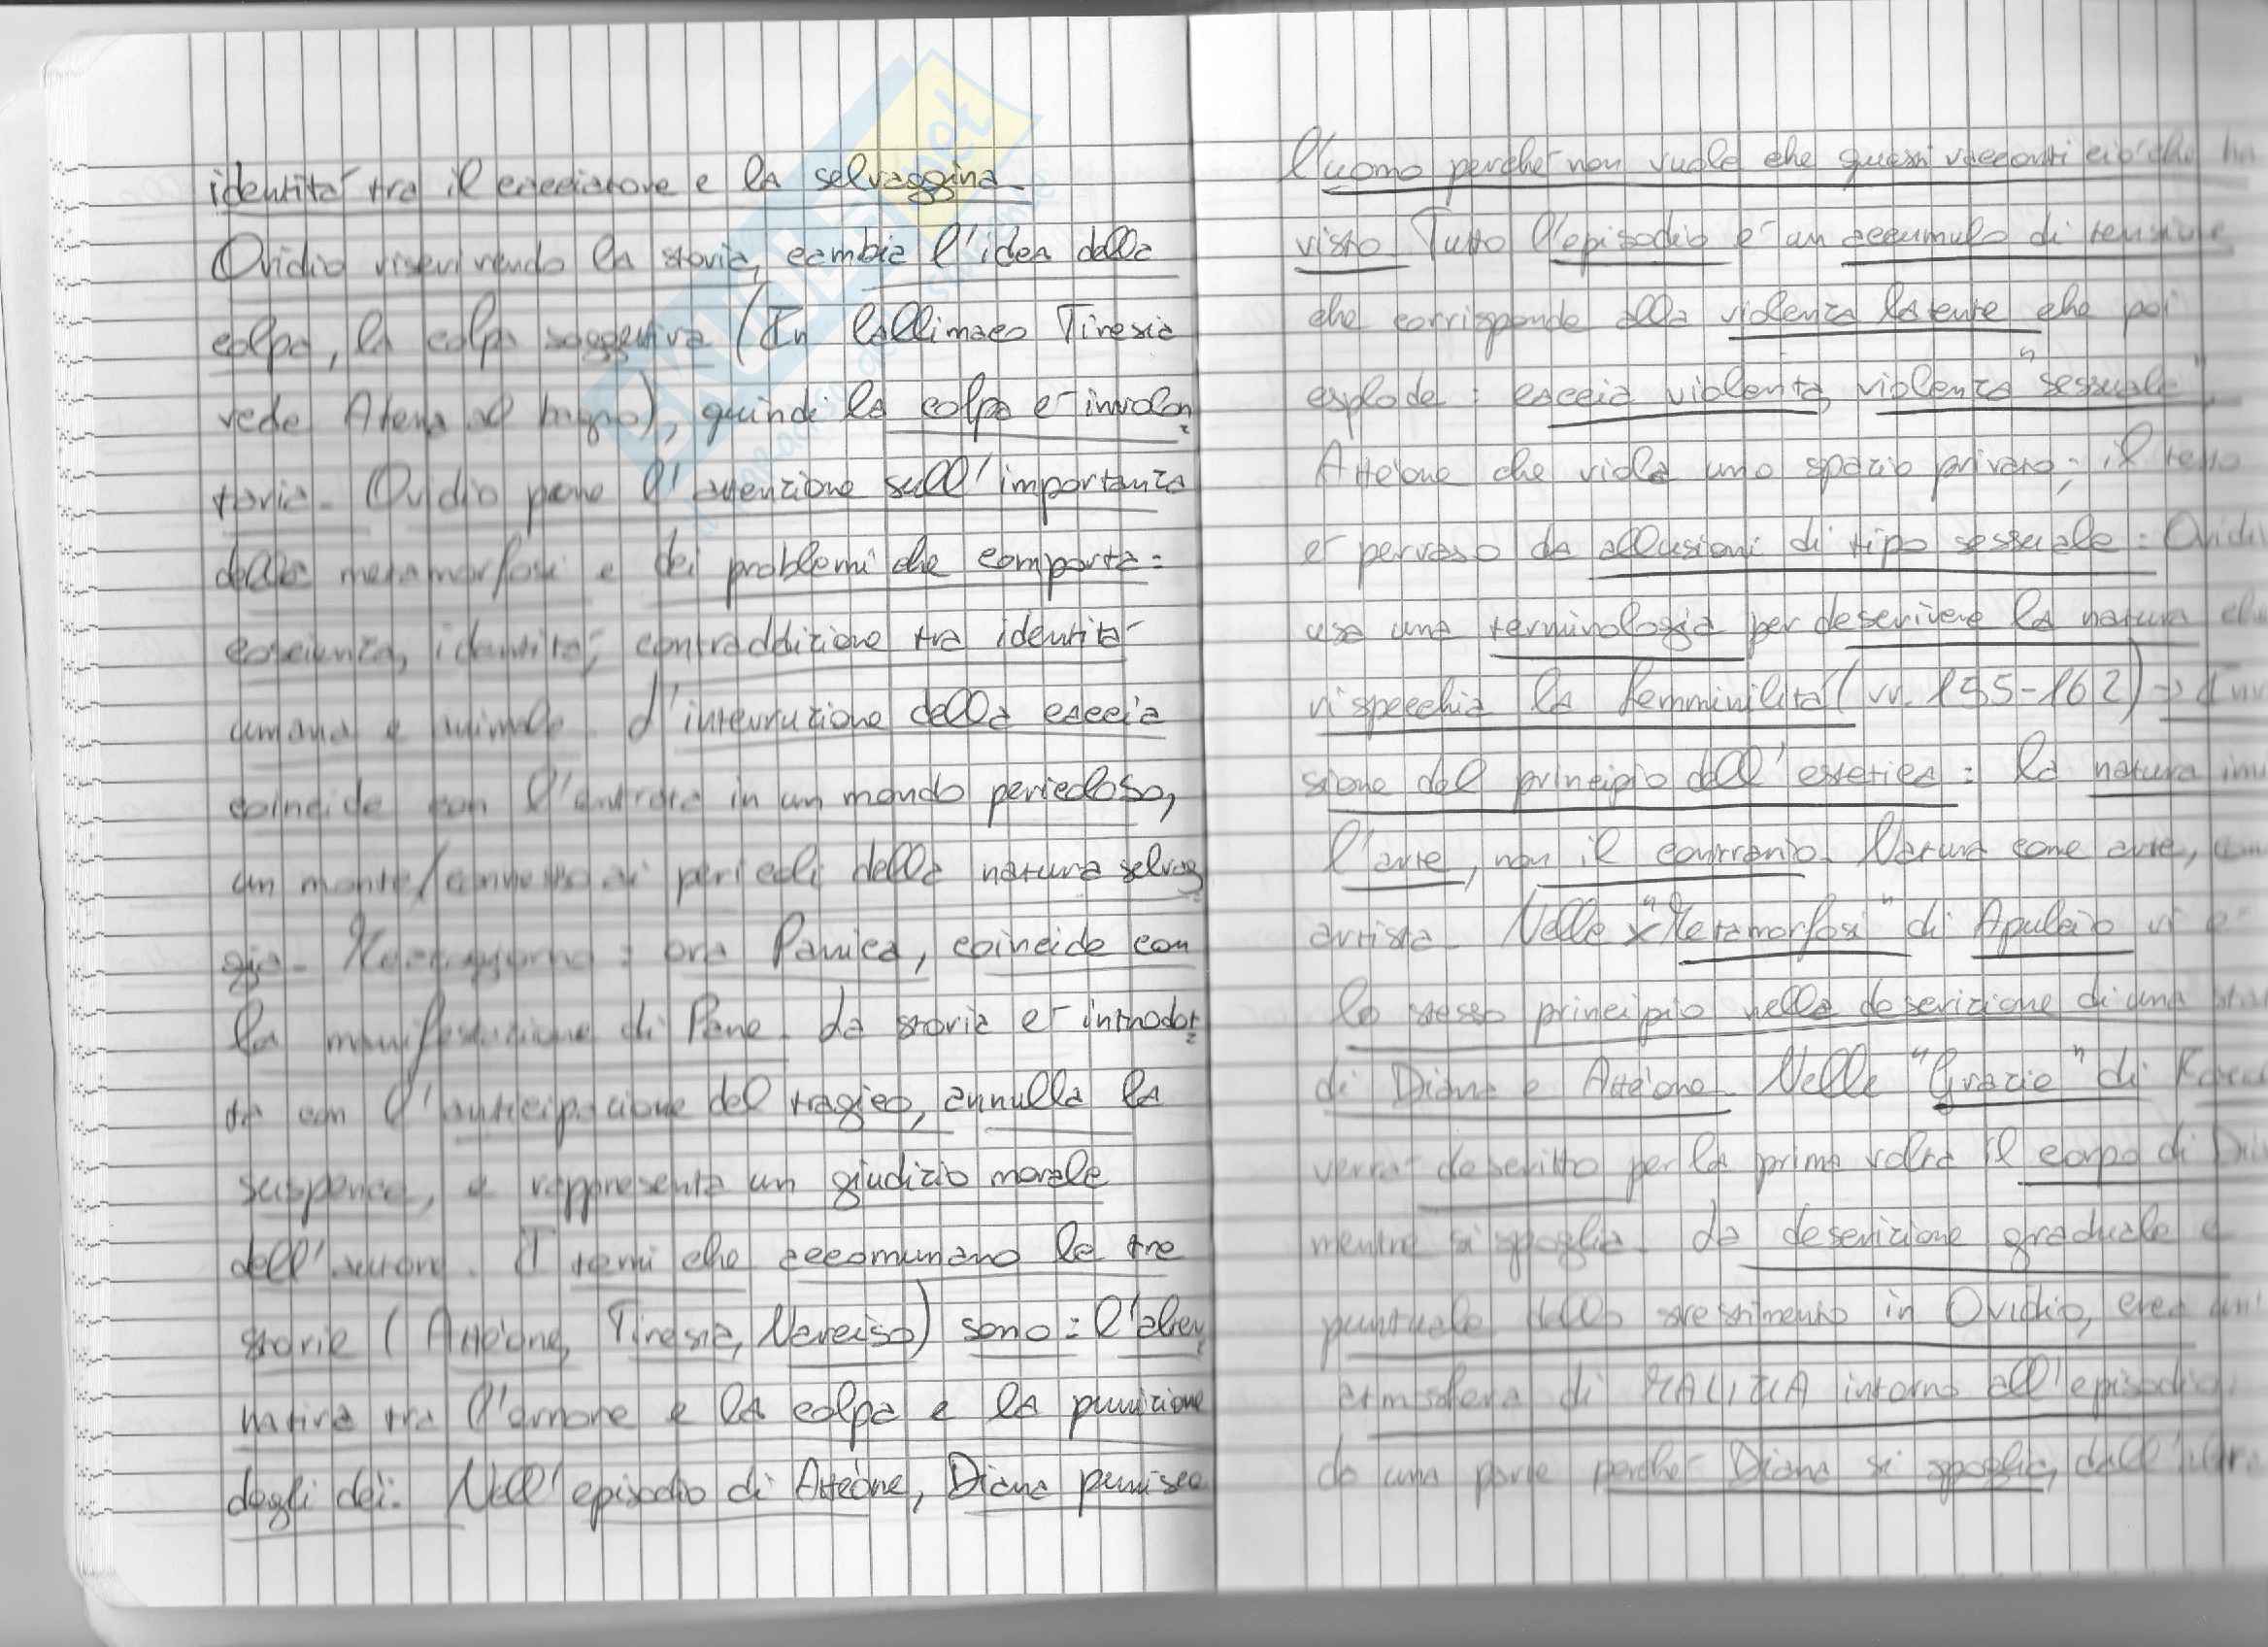 identità tra il cacciatore e la selvaggina.
Ovidio riscrivendo la storia, cambia l'idea della
colpa, la colpa soggettiva (In Callimaco Tiresia
vede Atena al bagno), quindi la colpa è involon
taria. Ovidio pone l'attenzione sull'importanza
della metamorfosi e dei problemi che comporta:
coscienza, identità, contraddizione tra identità
umana e animale. L'interruzione della caccia
coincide con l'entrata in un mondo pericoloso,
un monte/ ai pericoli della natura selvag
gia. Mezzogiorno: ora Panica, coincide con
la manifestazione di Pane. La storia è introdot
ta con l'anticipazione del tragico, annulla la
suspence, e rappresenta un giudizio morale
dell'autore. I temi che accomunano le tre
storie (Attèone, Tiresia, Narciso) sono: l'alter
nativa tra l'amore e la colpa e la punizione
degli dèi. Nell'episodio di Attèone, Diana punisce
l'uomo perchè non vuole che questi racconti ciò che ha
visto. Tutto l'episodio è un accumulo di tensione
che corrisponde alla violenza latente che poi
esplode: caccia violenta, violenza "sessuale"
Attèone che viola uno spazio privato; il testo
è pervaso da allusioni di tipo sessuale: Ovidi
usa una terminologia per descrivere la natura che
rispecchia la femminilità (vv. 155-162) → d'inv
sione del principio dell'estetica: la natura imi
l'arte, non il contrario. Natura come arte, com
artista. Nelle "Metamorfosi" di Apuleio vi è
lo stesso principio nella descrizione di una sta
di Diana e Attèone. Nelle "Grazie" di
verrà descritto per la prima volta il corpo di Dia
mentre si spoglia. La descrizione graduale e
puntuale dello svestimento in Ovidio, crea un'
atmosfera di MALIZIA intorno all'episodio,
da una parte perchè Diana si spoglia, dall'altra